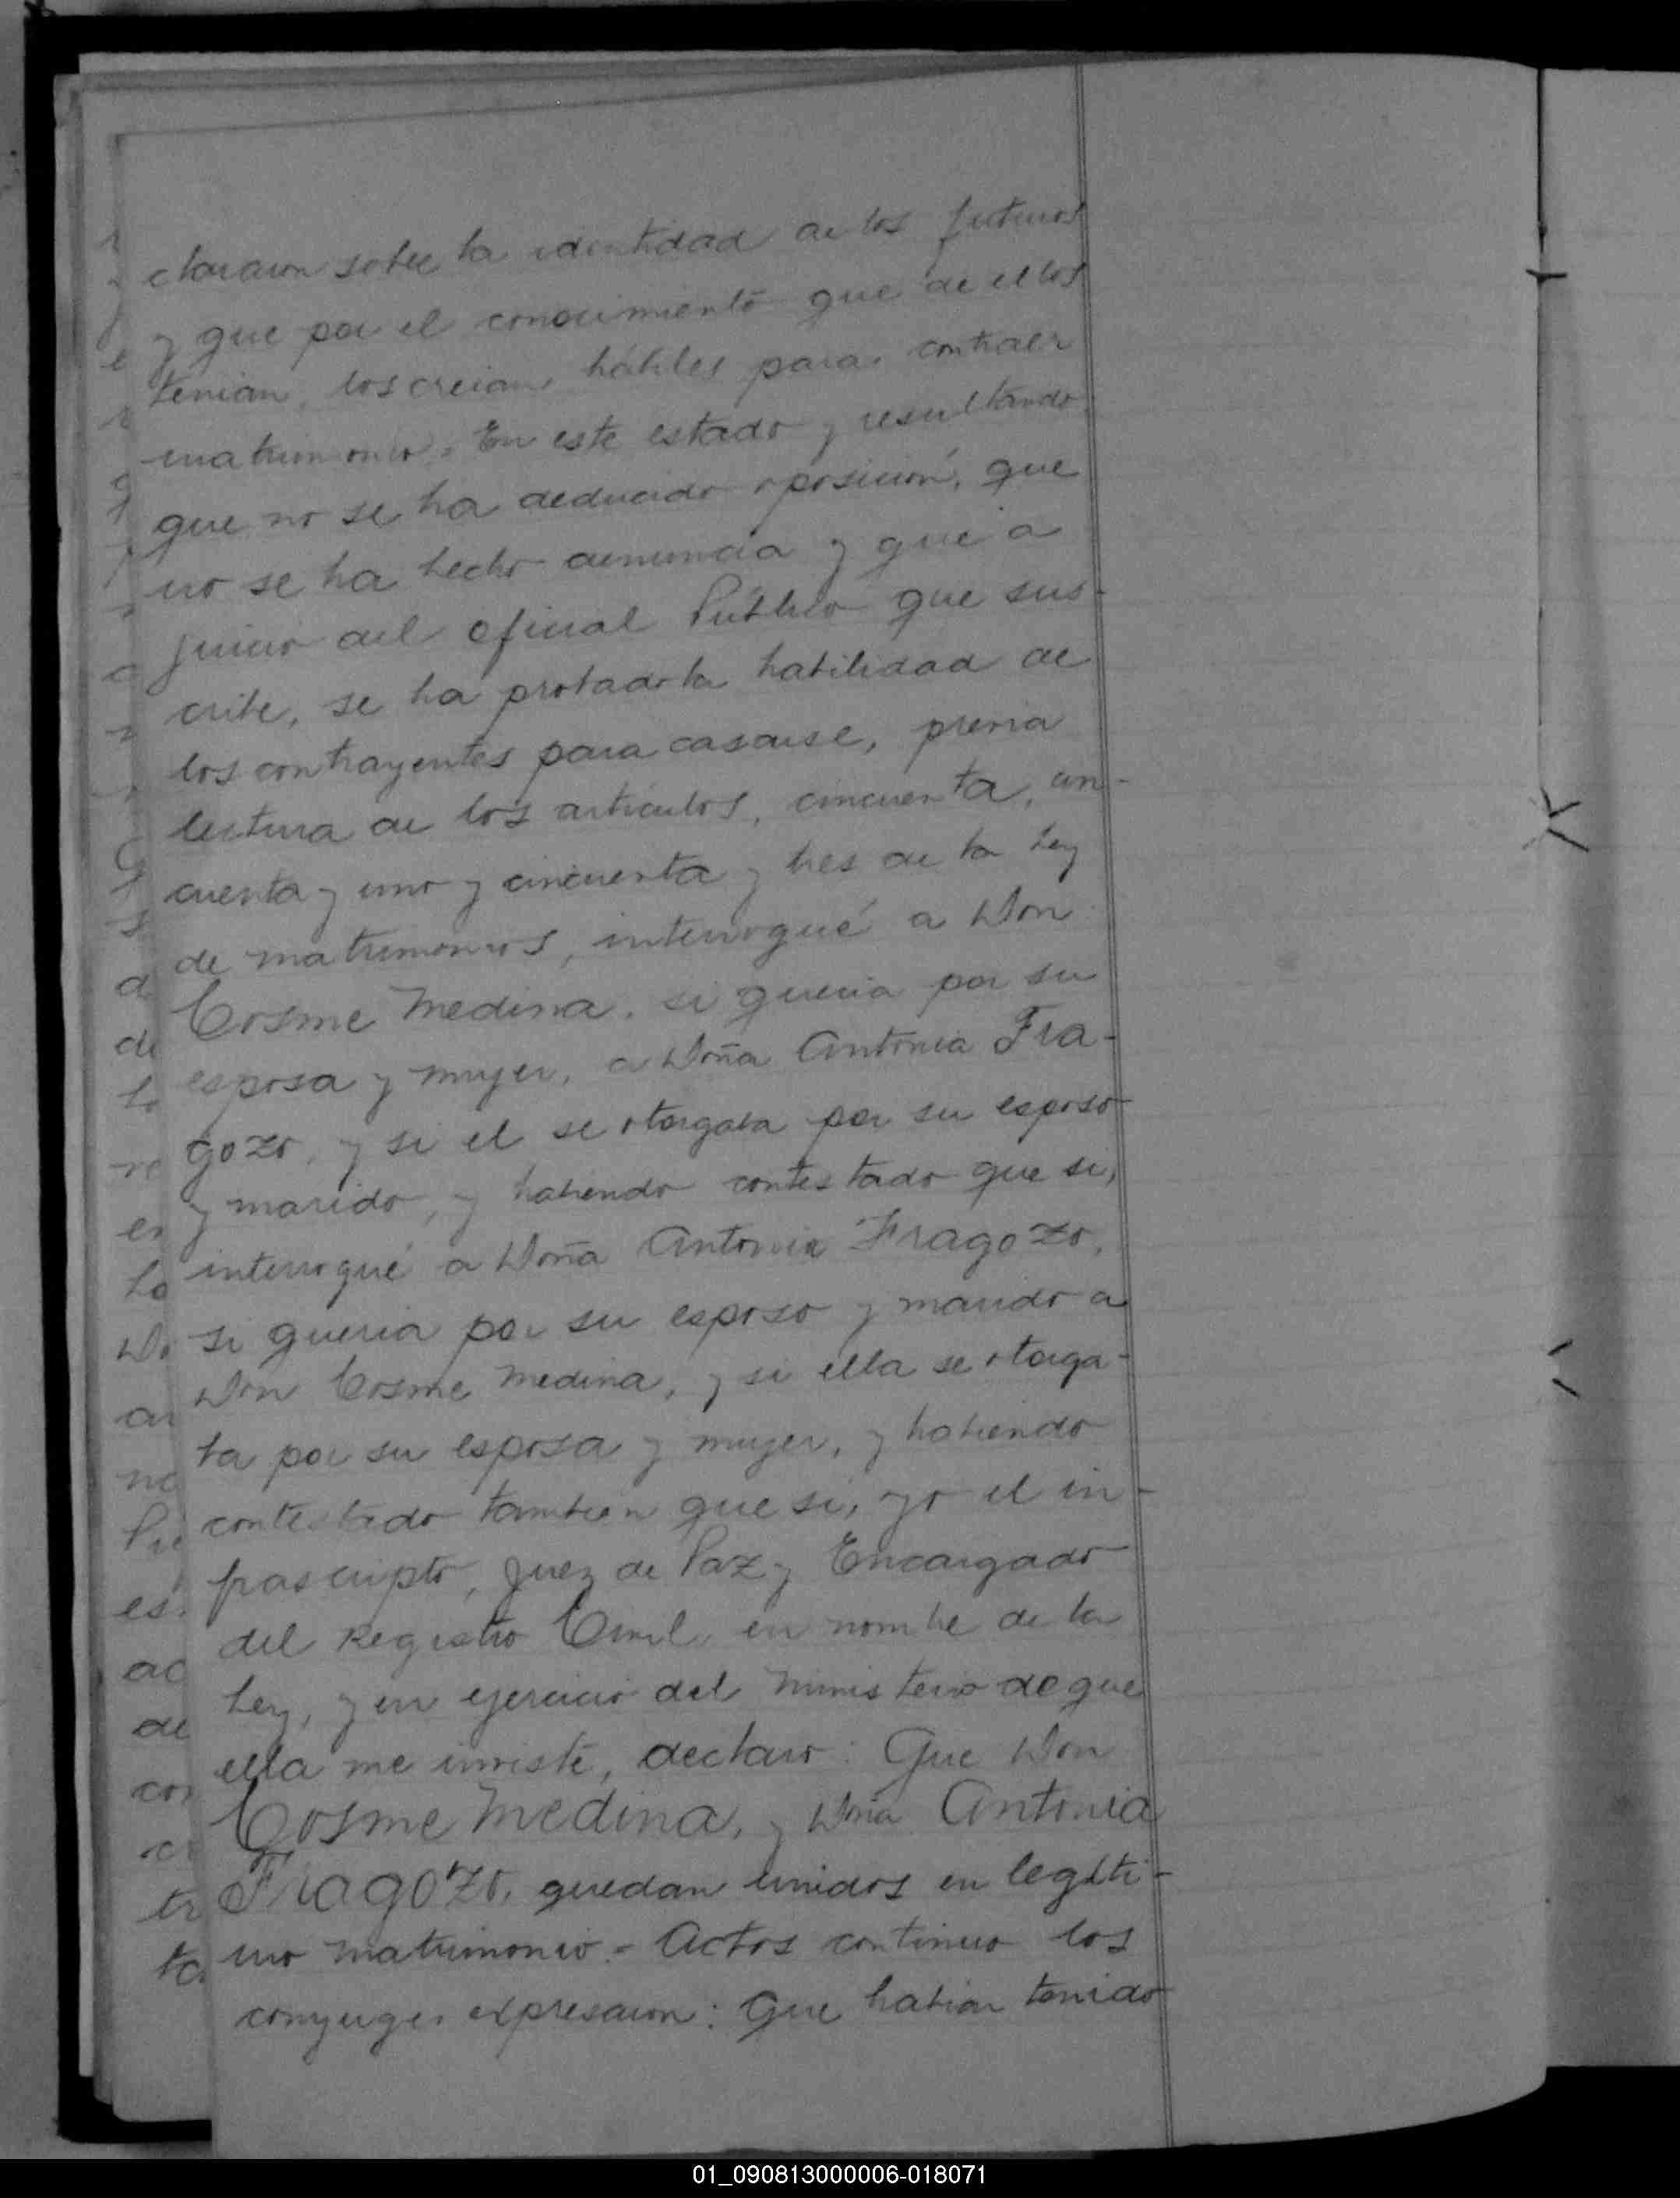 claracion sobre la identidad de los futuros
y que por el conocimiento que de ellos
tenian, los creian, hábiles para contraer
matrimonio. En este estado y resultando
que no se ha deducido oposición, que
no se ha hecho denuncia y que a
juicio del oficial Público que sus-
cribe, se ha probado la habilidad de
los contrayentes para casarse, previa
lectura de los articulos, cincuenta, cin-
cuenta y uno y cincuenta y tres de la Ley
de matrimonios, interrogué a Don
Cosme Medina, si queria por su
esposa y mujer, a Doña Antonia Fra-
gozo, y si el se otorgaba por su esposo
y marido, y habiendo contestado que si,
interrogué a Doña Antonia Fragozo,
si queria por su esposo y marido a
Don Cosme Medina, y si ella se otorga-
ba por su esposa y mujer, y habiendo
contestado tambien que si, yo el in-
frascripto, Juez de Paz y Encargado
del Registro Civil en nombre de la
Ley, y en ejercicio del Ministerio de que
ella me inviste, declaro: Que Don
Cosme Medina, y Doña Antonia
Fragozo, quedan unidos en legiti-
mo matrimonio.- Actos continuo los
conyuges expresaron: Que habian tenido
01_090813000006-018071